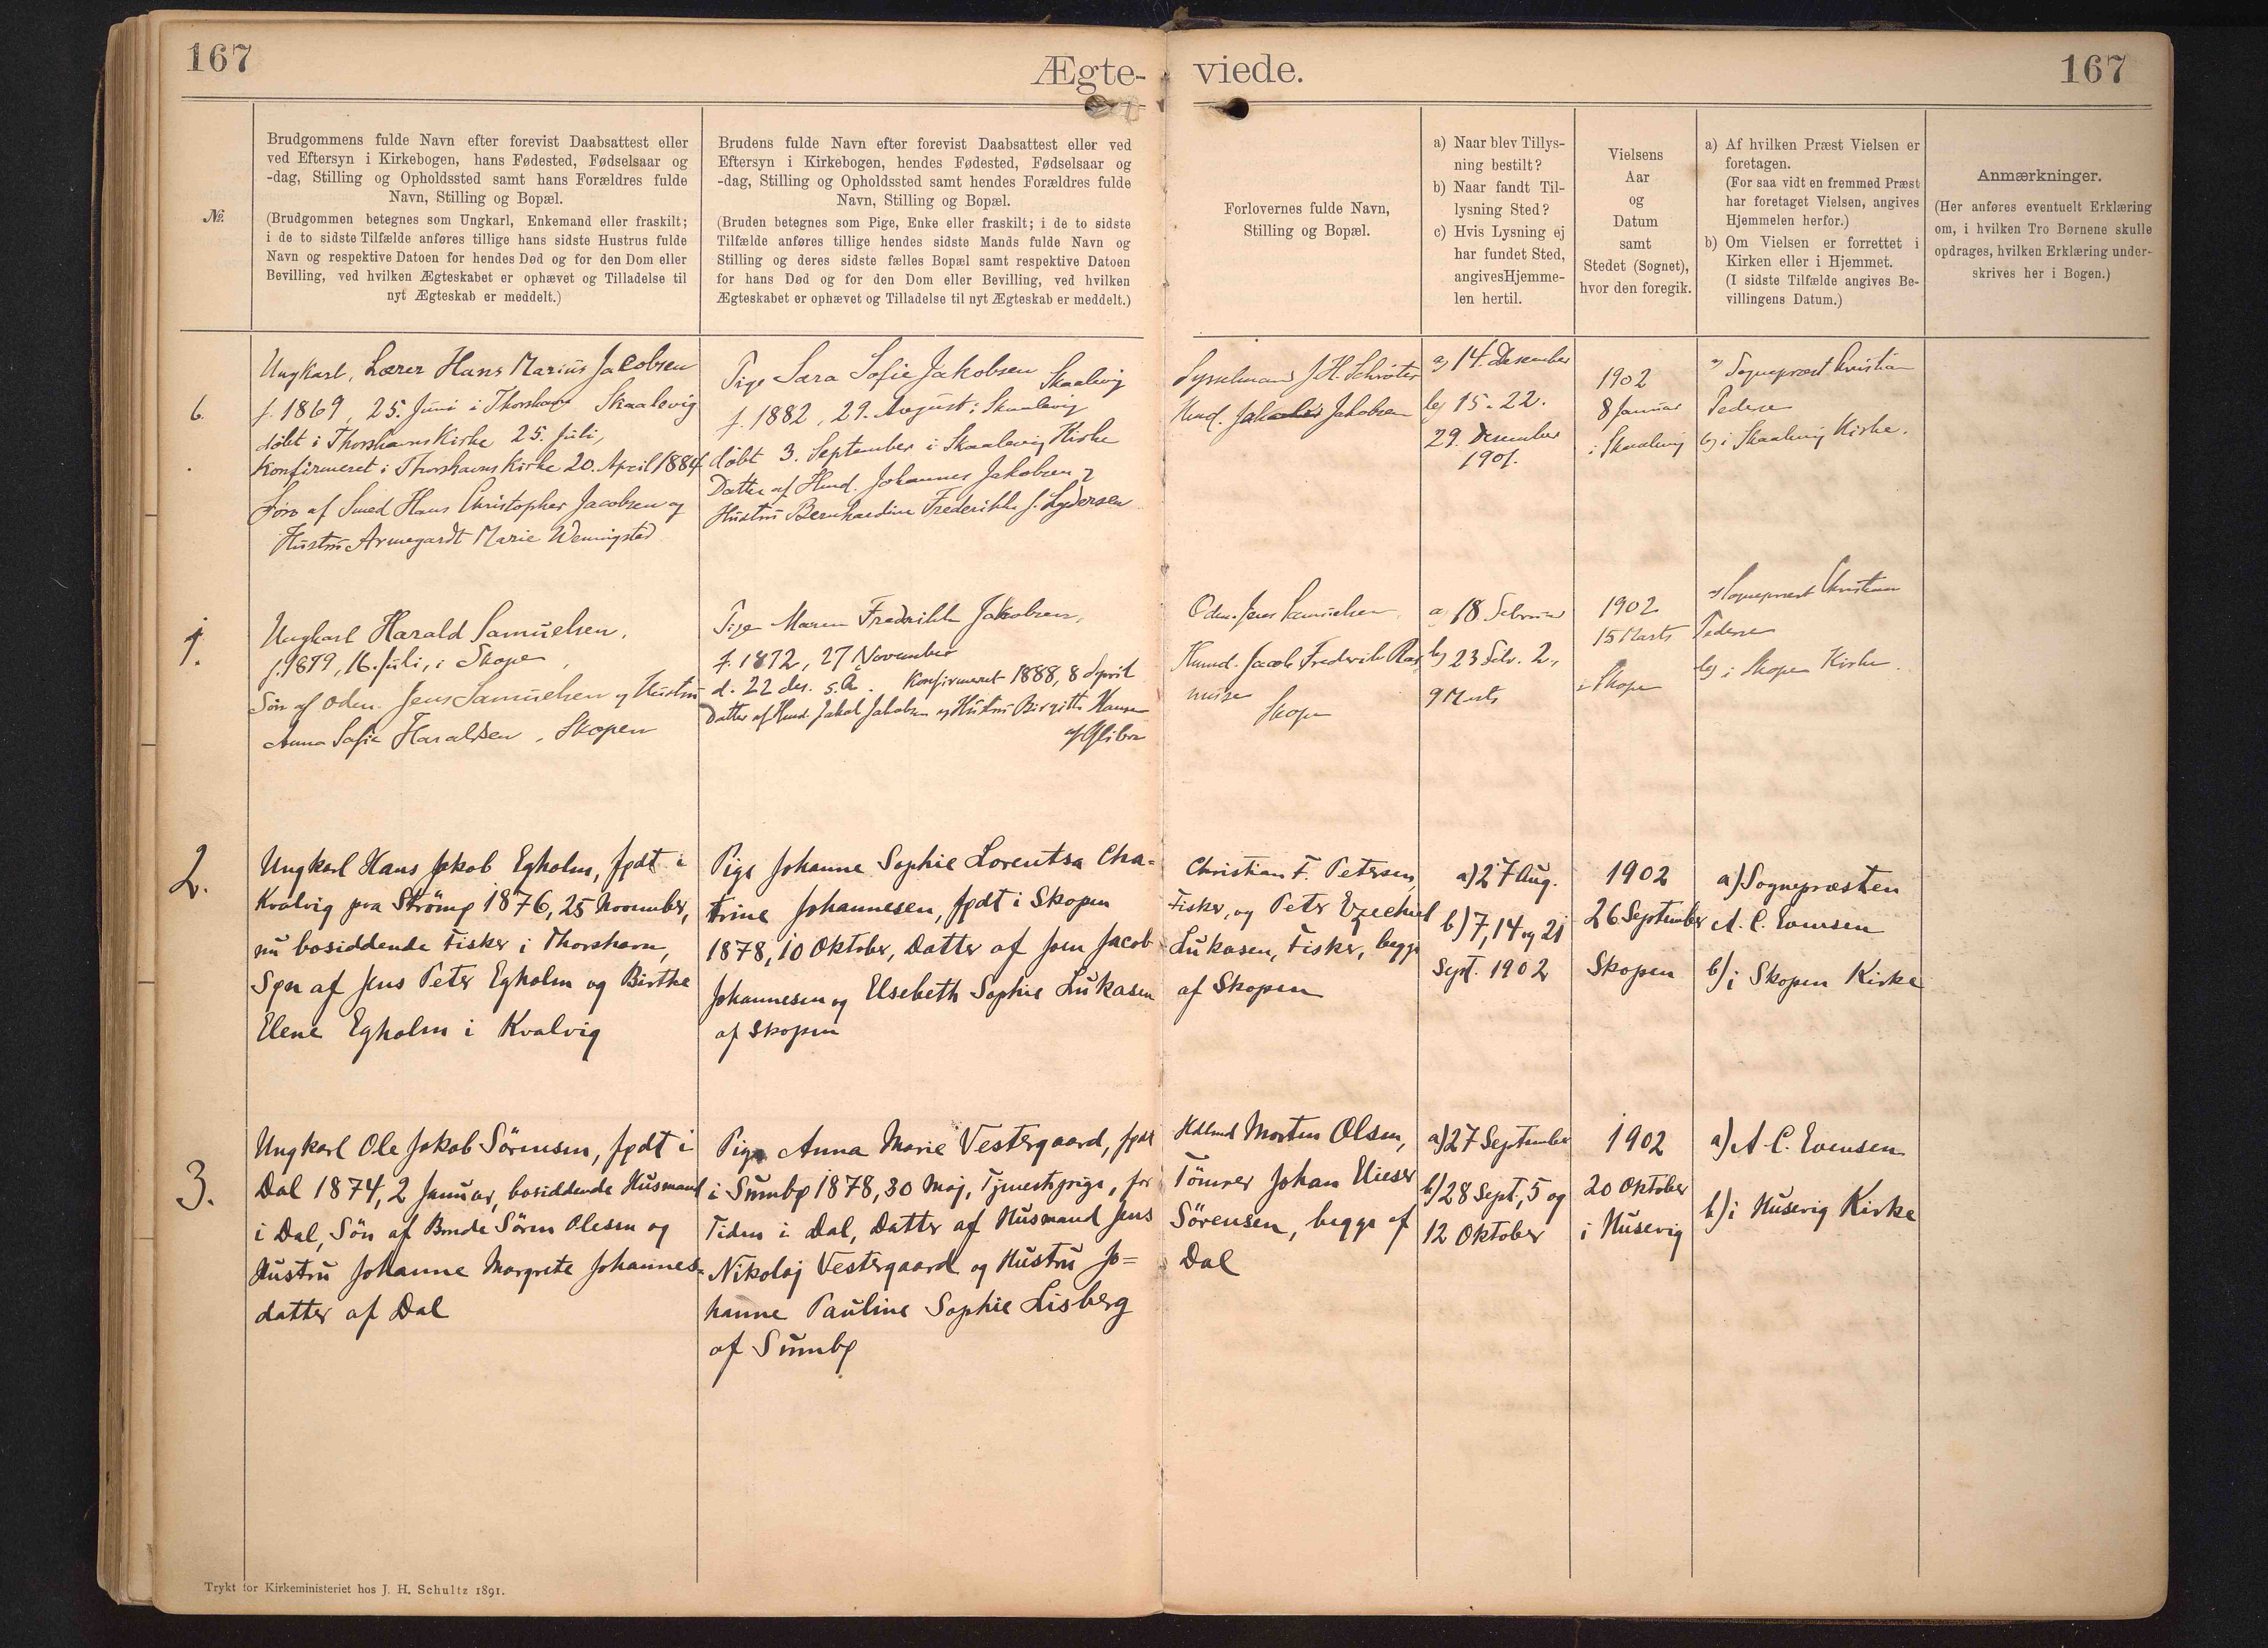 167
Ægte-
viede.
167
№.
Brudgommens fulde Navn efter forevist Daabsattest eller
ved Eftersyn i Kirkebogen, hans Fødested, Fødselsaar og
-dag, Stilling og Opholdssted samt hans Forældres fulde
Navn, Stilling og Bopæl.
(Brudgommen betegnes som Ungkarl, Enkemand eller fraskilt;
i de to sidste Tilfælde anføres tillige hans sidste Hustrus fulde
Navn og respektive Datoen for hendes Død og for den Dom eller
Bevilling, ved hvilken Ægteskabet er ophævet og Tilladelse til
nyt Ægteskab er meddelt.)
Brudens fulde Navn efter forevist Daabsattest eller ved
Eftersyn i Kirkebogen, hendes Fødested, Fødselsaar og
-dag, Stilling og Opholdssted samt hendes Forældres fulde
Navn, Stilling og Bopæl.
(Bruden betegnes som Pige, Enke eller fraskilt; i de to sidste
Tilfælde anføres tillige hendes sidste Mands fulde Navn og
Stilling og deres sidste fælles Bopæl samt respektive Datoen
for hans Død og for den Dom eller Bevilling, ved hvilken
Ægteskabet er ophævet og Tilladelse til nyt Ægteskab er meddelt.)
Forlovernes fulde Navn,
Stilling og Bopæl.
a) Naar blev Tillys-
ning bestilt?
b) Naar fandt Til-
lysning Sted?
c) Hvis Lysning ej
har fundet Sted,
angives Hjemme-
len hertil.
Vielsens
Aar
og
Datum
samt
Stedet (Sognet),
hvor den foregik.
a) Af hvilken Præst Vielsen er
foretagen.
(For saa vidt en fremmed Præst
har foretaget Vielsen, angives
Hjemmelen herfor.)
b) Om Vielsen er forrettet i
Kirken eller i Hjemmet.
(I sidste Tilfælde angives Be-
villingens Datum.)
Anmærkninger.
(Her anføres eventuelt Erklæring
om, i hvilken Tro Børnene skulle
opdrages, hvilken Erklæring under-
skrives her i Bogen.)
6.
Ungkarl, Lærer Hans Marius Jacobsen
f. 1869, 25. Juni i Thorshavn Skaalevig
døbt i Thorshavns Kirke 25. Juli,
Konfirmeret i Thorshavns Kirke 20. April 1884
Søn af Smed Hans Christopher Jacobsen og
Hustru Armegardt Marie Wenningsted
Pige Sara Sofie Jakobsen Skaalevig
f. 1882, 29. August i Skaalevig
døbt 3. September i Skaalevig Kirke
Datter af Husd. Johannes Jakobsen og
Hustru Bernhardine Frederikke f. Lydersen
Sysselmand J.H. Schrøter
Husd. Jakobsen
a) 14. Desember
b) 15. 22.
29. Desember
1901.
1902
8 Januar
i Skaalevig
a) Sognepræst Kristian
Pedersen
b) i Skaalevig Kirke.
1.
Ungkarl Harald Samuelsen,
f. 1879, 16. Juli, i Skopen,
Søn af Odm. Jens Samuelsen og Hustru
Anna Sofie Haraldsen, Skopen
Pige Maren Fredrikke Jakobsen,
f. 1872, 27 November
d. 22 des. s.A. Konfirmeret 1888, 8 April
Datter af Husd. Jakob Jakobsen og Hustru Birgitte Hansen
af Glibre
Odm. Jens Samuelsen,
Husmd. Jacob Frederik Ras-
musen
Skopen
a) 18 Februar
b) 23 Febr. 2.,
9 Marts
1902
15 Marts
i Skopen
a) Sognepræst Christian
Pedersen
b) i Skopen Kirke.
2.
Ungkarl Hans Jakob Egholm, født i
Kvalvig paa Strömø 1876, 25 November,
nu bosiddende Fisker i Thorshavn,
Søn af Jens Peter Egholm og Birthe
Elene Egholm i Kvalvig
Pige Johanne Sophie Lorentsa Cha-
trine Johannesen, født i Skopen
1878, 10 Oktober, Datter af Joen Jacob
Johannesen og Elsebeth Sophie Lukasen
af Skopen
Christian F. Petersen,
Fisker, og Peter Ezechiel
Lukasen, Fisker, begge
af Skopen
a) 27 Aug.
b) 7, 14 og 21
Sept. 1902
1902
26 September
Skopen
a) Sognepræsten
A. C. Evensen
b) i Skopen Kirke
3.
Ungkarl Ole Jakob Sörensen, født i
Dal 1874, 2 Januar, bosiddende Husmand
i Dal, Sön af Bonde Sören Olesen og
Hustru Johanne Margrete Johannes-
datter af Dal
Pige Anna Marie Vestergaard, født
i Sumbø 1878, 30 Maj, Tjenestepige, for
Tiden i Dal, Datter af Husmand Jens
Nikolaj Vestergaard og Hustru Jo=
hanne Pauline Sophie Lisberg
af Sumbø
Morten Olsen,
Tömrer Johan Elieser
Sörensen, begge af
Dal
a) 27 September
b) 28 Sept., 5 og
12 Oktober
1902
20 Oktober
i Husevig
a) A. C. Evensen
b) i Husevig Kirke
Trykt for Kirkeministeriet hos J. H. Schultz 1891.